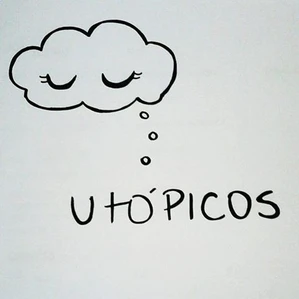 UtÓPICOS